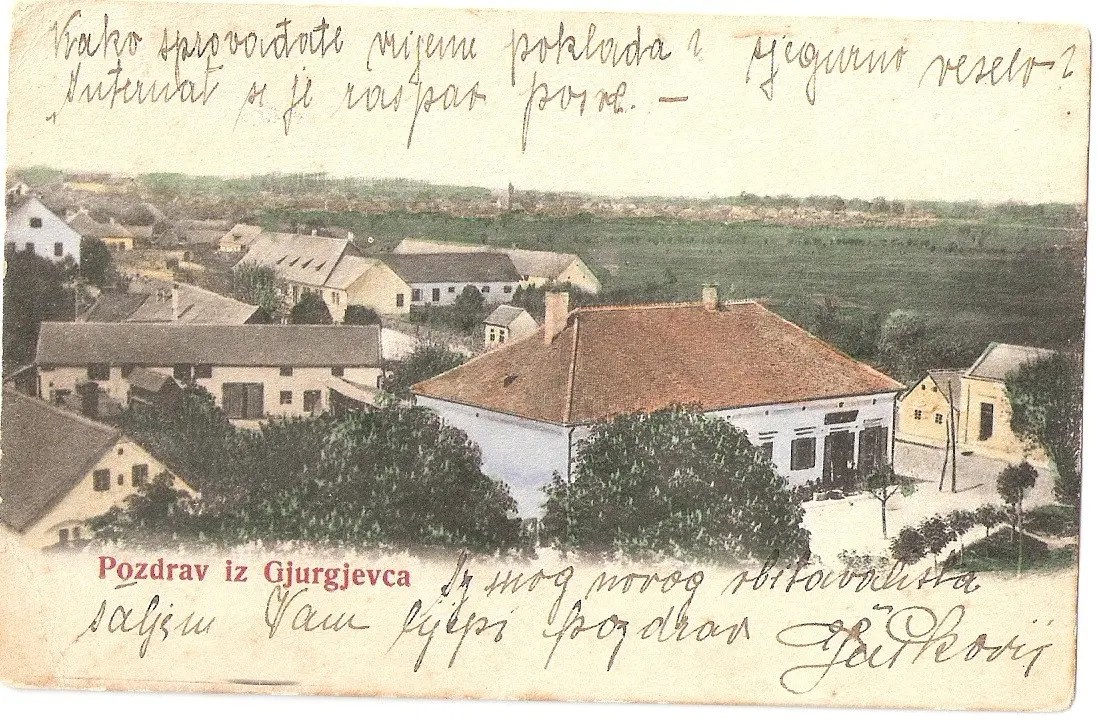 Kako sprovađate vrijeme poklada? sjegurno veselo?
Internat se je raspao posve. —
Pozdrav iz Gjurgjevca
Iz mog novog obitavališta
šaljem Vam lijepi pozdrav